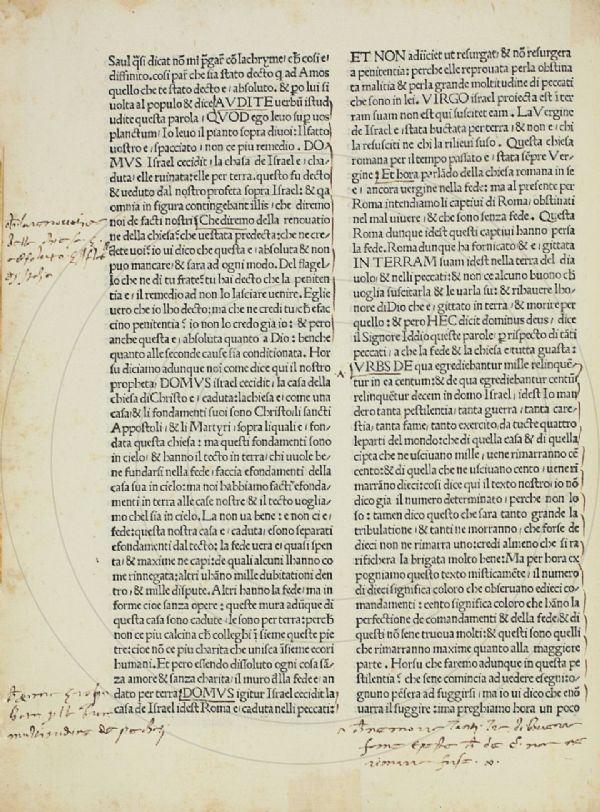 Saul q̃si dicat nõ mi p̃gar̃ cõ lachryme, ch̃ cosi e,
diffinito. cosi par̃ che sia stato decto q ad Amos
quello che te stato decto e, absoluto. & po lui si
uolta al populo & dice AVDITE uerbũ istud
udite questa parola, QVOD ego leuo sup uos
planctum, Io leuo il pianto sopra diuoi: Il fatto
uostro e, spacciato, non ce piu remedio. DO-
MVS Israel cecidit, la chasa de Israel e, cha-
duta, elle ruinata: elle per terra, questo fu decto
& ueduto dal nostro profeta sopra Israel: & q̃a
omnia in figura contingebant illis, che diremo
noi de facti nostri, Che diremo della renouatio
ne della chiesa? che ue stata predecta, che ne cre
dete uoi? io ui dico che questa e, absoluta & non
puo mancare, & sara ad ogni modo. Del flagel
lo che ne di tu frate? tu hai decto che la peniten
tia e, il remedio ad non lo lasciare uenire. Eglie
uero che io lho decto; ma che ne credi tu ch̃ e fac
cino penitentia? io non lo credo gia io: & pero
anche questa e, absoluta quanto a Dio: benche
quanto alle seconde cause sia conditionata. Hor
su diciamo adunque noi come dice qui il nostro
propheta, DOMVS israel cecidit, la casa della
chiesa di Christo e, caduta: la chiesa e, come una
casa: & li fondamenti suoi sono Christo: li sancti
Appostoli, & li Martyri, sopra liquali e, fon-
data questa chiesa: ma questi fondamenti sono
in cielo, & hanno il tecto in terra, chi uuole be-
ne fundarsi nella fede, faccia efondamenti della
casa sua in cielo: ma noi habbiamo facti efonda-
menti in terra alle case nostre & il tecto uoglia-
mo chel sia in cielo. La non ua bene: e non ci e,
fede: questa nostra casa e, caduta: e sono separati
efondamenti dal tecto: la fede uera e, quasi spen
ta, & maxime ne capi: de quali alcuni lhanno co
me rinnegata: altri uhãno mille dubitationi den
tro, & mille dispute. Altri hanno la fede, ma in
forme cioe sanza opere: queste mura adũque di
questa casa sono cadute, le sono per terra: perch̃
non ce piu calcina ch̃ colleghi ĩsieme queste pie
tre: cioe nõ ce piu charita che unisca ĩsieme ecori
humani. Et pero essendo dissoluto ogni cosa sã-
za amore & sanza charita, il muro dlla fede e, an
dato per terra, DOMVS igitur Israel cecidit la
casa de Israel idest Roma e, caduta nelli peccati:
ET NON adiiciet ut resurgat, & nõ resurgera
a penitentia: perche elle reprouata per la obstina
ta malitia & per la grande moltitudine di peccati
che sono in lei. VIRGO israel proiecta est ĩ ter
ram suam non est qui suscitet eam. La Vergine
de Israel e, stata buctata per terra, & non e, chi
la resusciti ne chi la rilieui suso. Questa chiesa
romana per il tempo passato e, stata sẽpre Ver-
gine, Et hora parlãdo della chiesa romana in se
e, ancora uergine nella fede: ma al presente per
Roma intendiamo li captiui di Roma, obstinati
nel mal uiuere, & che sono senza fede. Questa
Roma dunque idest questi captiui hanno persa
la fede. Roma dunque ha fornicato & e, gittata
IN TERRAM suam idest nella terra del dia
uolo, & nelli peccati: & non ce alcuno buono ch̃
uoglia suscitarla & le uarla su: & ribauere lho-
nore di Dio che e, gittato in terra, & morire per
quello: & pero HEC dicit dominus deus, dice
il Signore Iddio queste parole p̃ rispecto di tãti
peccati, a che la fede & la chiesa e tutta guasta:
VRBS DE qua egrediebantur mille relinquẽ-
tur in ea centum: & de qua egrediebantur centũ
relinquẽtur decem in domo Israel, idest Io man
dero tanta pestilentia, tanta guerra, tanta care-
stia, tanta fame, tanto exercito, da tucte quattro
le parti del mondo: che di quella casa & di quella
cipta che ne usciuano mille, uene rimarranno cẽ
cento: & di quella che ne usciuano cento, uene ri
marrãno dieci: cosi dice qui il texto nostro: io nõ
dico gia il numero determinato, perche non lo
so: tamen dico questo che sara tanto grande la
tribulatione, & tanti ne morranno, che forse de
dieci non ne rimarra uno: credi almeno che si ra
rifichera la brigata molto bene: Ma per hora ex
pogniamo questo texto misticamẽte, il numero
di dieci significa coloro che obseruano edieci co-
mandamenti: cento significa coloro che hãno la
perfectione de comandamenti & della fede, & di
questi nõ sene truoua molti: & questi sono quelli
che rimarranno maxime quanto alla maggiore
parte. Horsu che faremo adunque in questa pe
stilentia? che sene comincia ad uedere e segni: o-
gnuno pẽsera ad fuggirsi, ma io ui dico che enõ
uarra il fuggire: ma preghiamo hora un poco